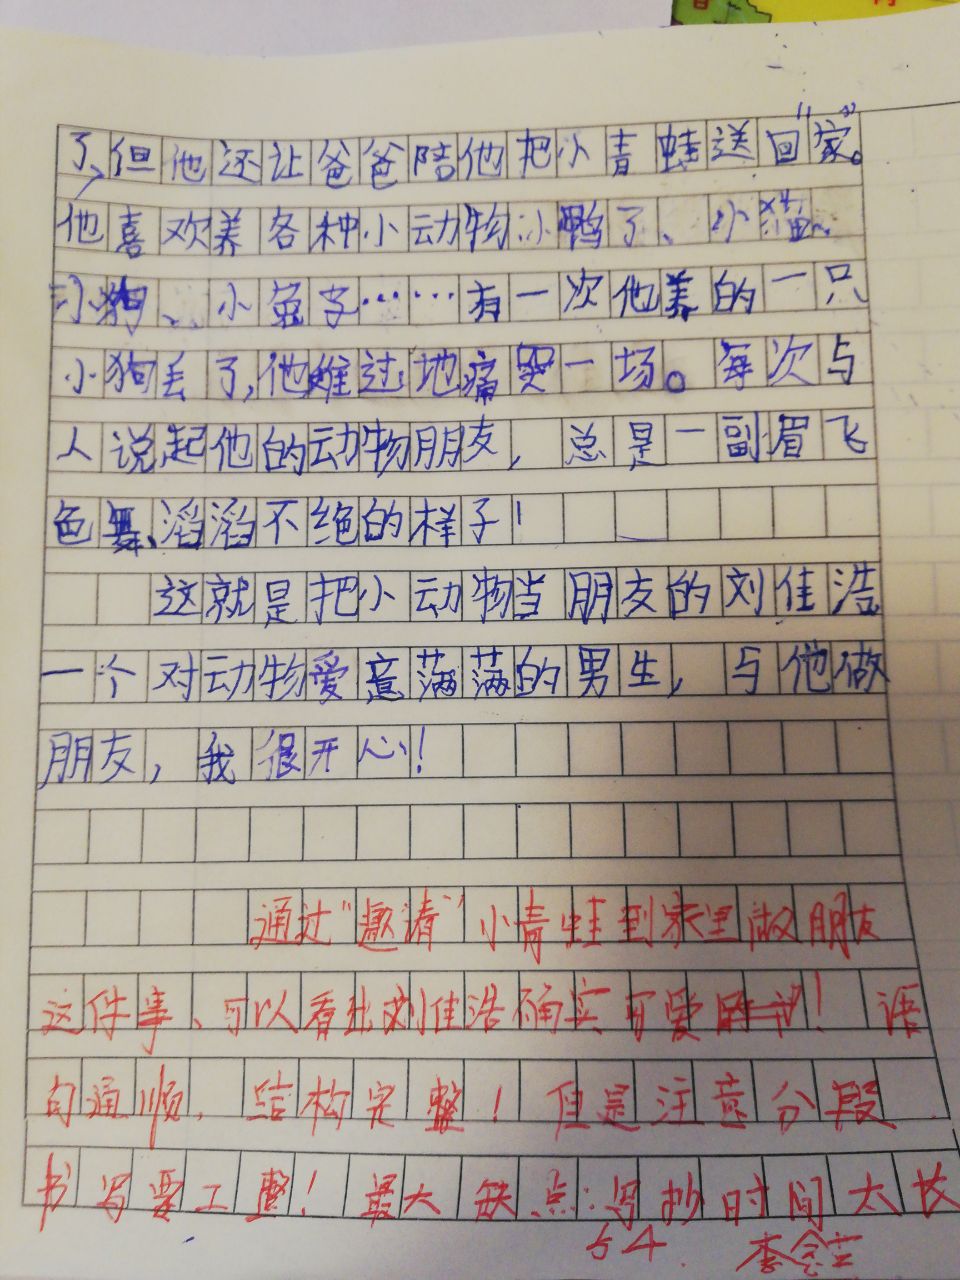 了,但他还让爸爸陪他把小青蛙送回“家”。
他喜欢养各种小动物小鸭子、小猫、
小狗、小兔子……有一次他养的一只
小狗丢了,他难过地痛哭一场。每次与
人说起他的动物朋友,总是一副眉飞
色舞、滔滔不绝的样子!
这就是把小动物当朋友的刘佳浩
一个对动物爱意满满的男生,与他做
朋友,我很开心!
通过“邀请”小青蛙到家里做朋友
这件事、可以看出刘佳浩确实可爱!语
句通顺,结构完整!但是注意分段
书写要工整!最大缺点:写抄时间太长
54